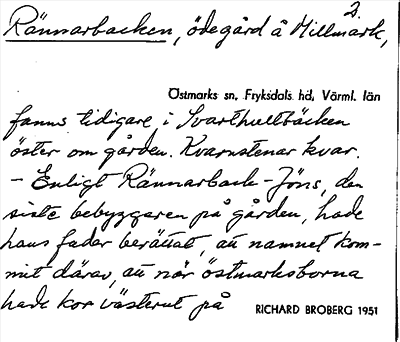 2.
Rännarbacken, ödegård å Millmark,
Östmarks sn, Fryksdals hd, Värml. län
fanns tidigare i Svarthultbäcken
öster om gården. Kvarnstenar kvar.
– Enligt Rännarback-Jöns, den
siste bebyggaren på gården, hade
hans fader berättat, att namnet kom-
mit därav, att när östmarksborna
hade kor västerut på
RICHARD BROBERG 1951